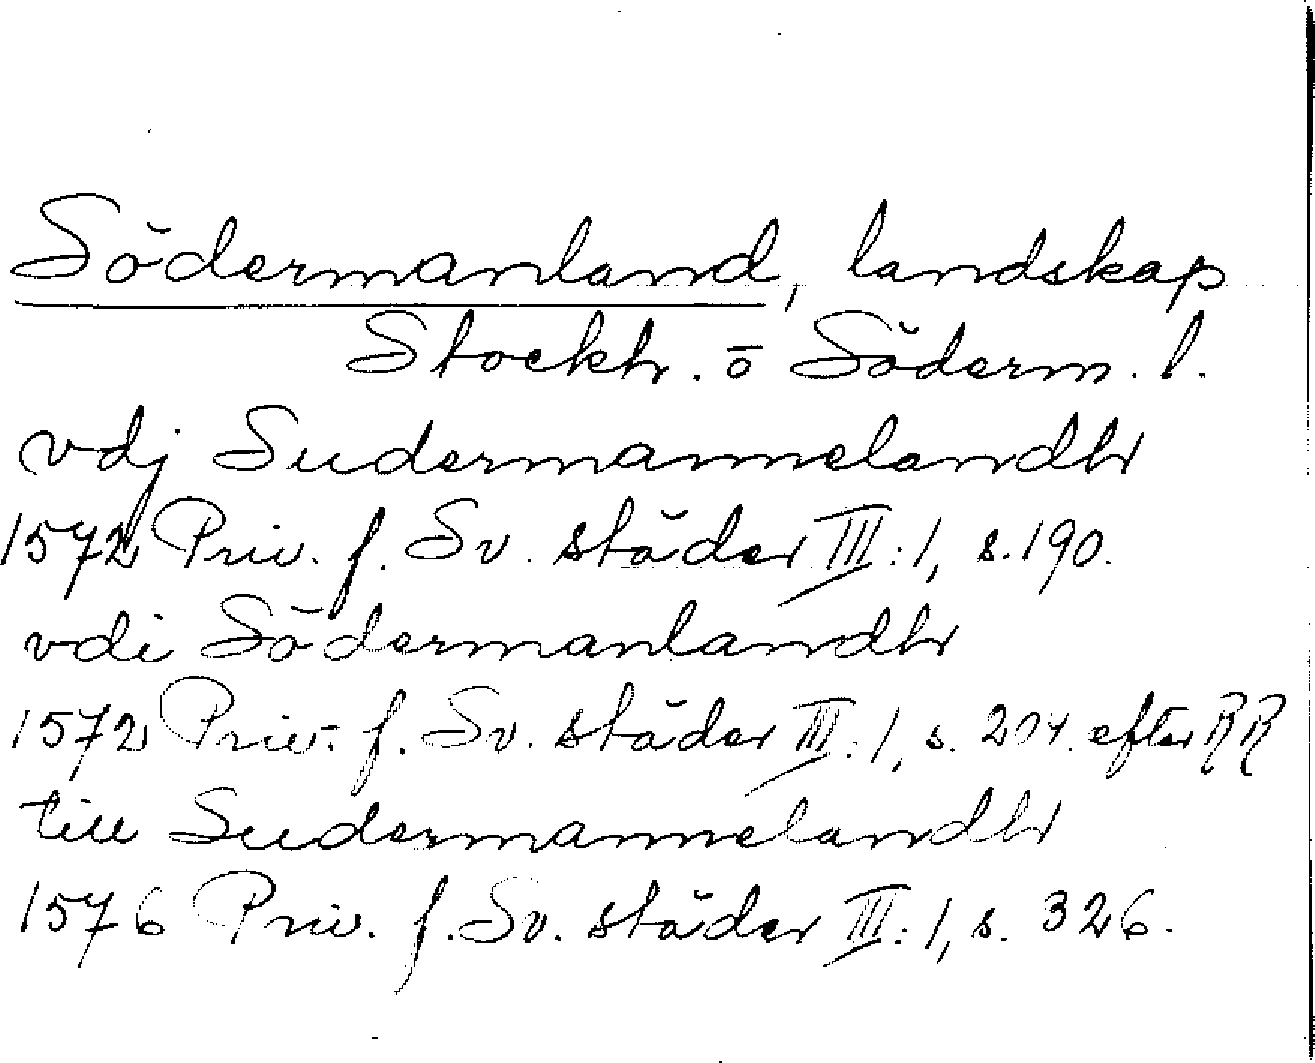 Södermanland, landskap
Stockh. o Söderm. l.
vdj Sudermannelandh
1572 Priv. f. Sv. städer III:1, s. 190.
vdi Södermanlandh
1572 Priv. f. Sv. städer III:1, s. 204. efter RR
till Sudermannelandh
1576 Priv. f. Sv. städer III:1, s. 326.